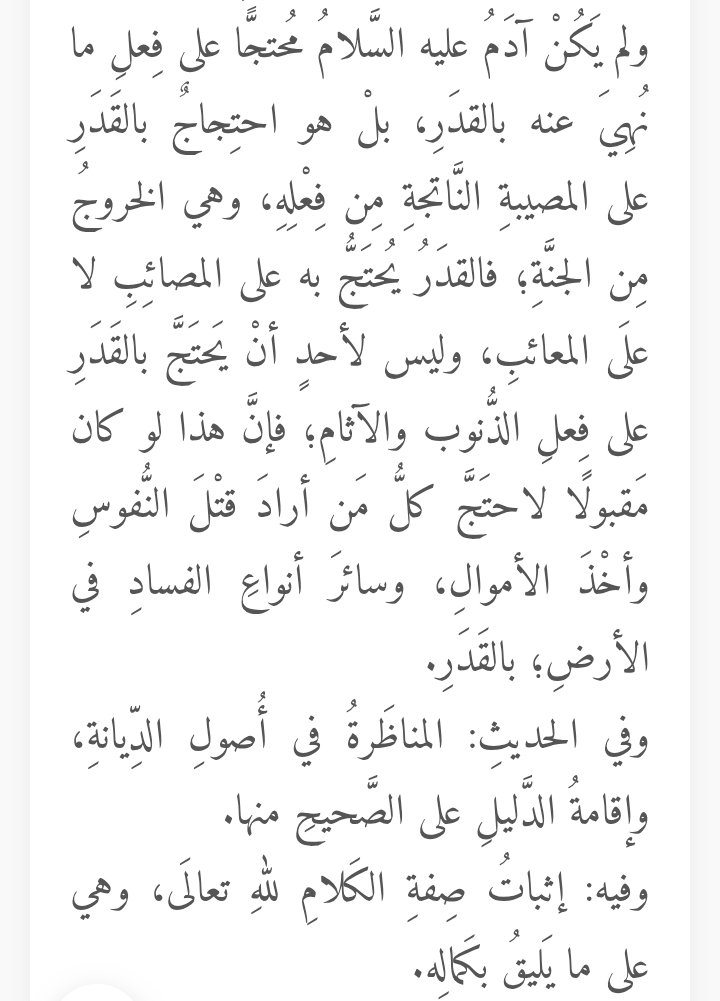 ولم يَكُنْ آدَمُ عليه السَّلامُ مُحتجًّا على فِعلِ ما
نُهِيَ عنه بالقَدَرِ، بلْ هو احتِجاجٌ بالقَدَرِ
على المصيبةِ النَّاتجةِ مِن فِعْلِهِ، وهي الخروجُ
مِن الجنَّةِ؛ فالقدَرُ يُحتَجُّ به على المصائبِ لا
علَى المعائبِ، وليس لأحدٍ أنْ يَحتَجَّ بالقَدَرِ
على فِعلِ الذُّنوب والآثامِ؛ فإنَّ هذا لو كان
مَقبولًا لاحتَجَّ كلُّ مَن أرادَ قتْلَ النُّفوسِ
وأخْذَ الأموالِ، وسائرَ أنواعِ الفسادِ في
الأرضِ؛ بالقَدَرِ.
وفي الحديثِ: المناظَرةُ في أُصولِ الدِّيانةِ،
وإقامةُ الدَّليلِ على الصَّحيحِ منها.
وفيه: إثباتُ صِفةِ الكَلامِ للهِ تعالَى، وهي
على ما يَليقُ بكَمالِه.